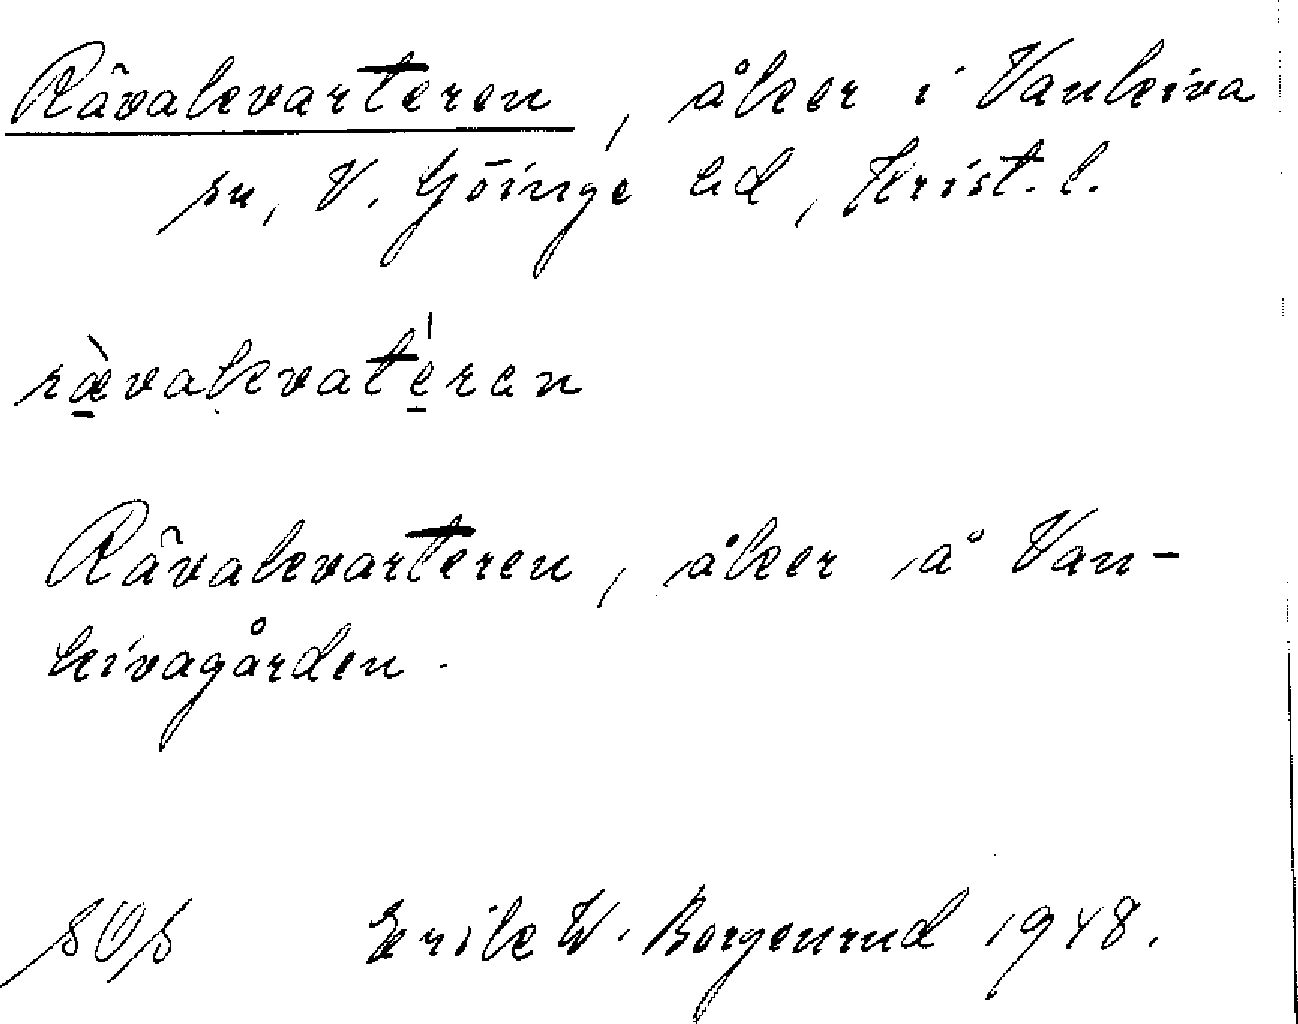 Rävakvarteren, åker i Vankiva
sn, V. Göinge hd, Krist. l.
rævakvatéran
Rävakvarteren, åker å Van-
kivagården.
Erik W. Borgenrud 1948.